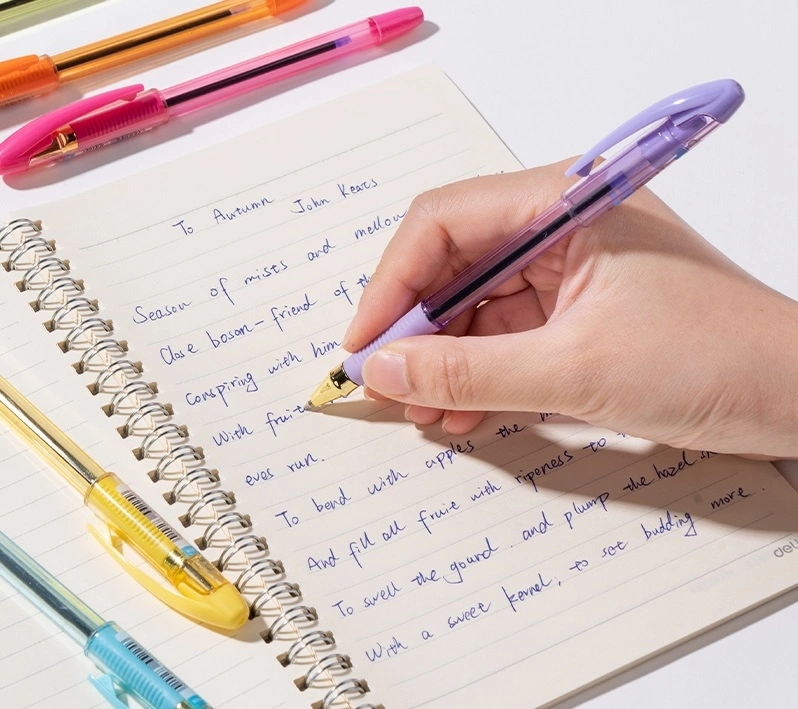 To Autumn John Keats
Season of mists and mellow
Close boson-friend of th
Conspiring with him
With fruit
eves run.
To bend with apples the m
And fill all fruit with ripeness to t
To swell the gourd. and plump the hazel sh
With a sweet kernel; to set budding more.
deli